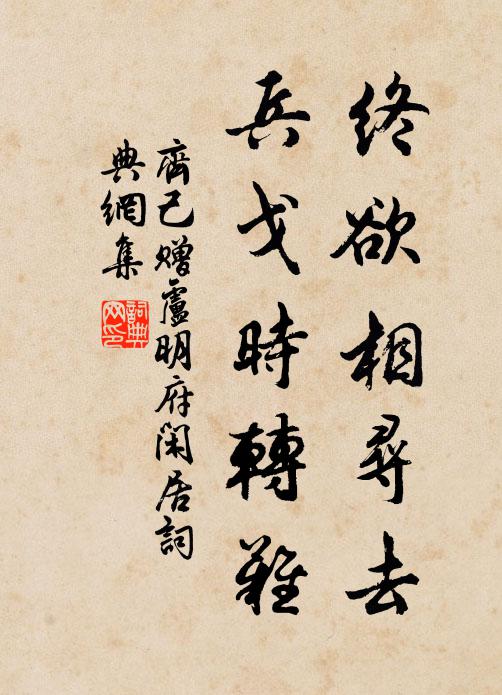 終欲相尋去
兵戈時轉難
齊己贈盧明府閑居詞
典網集
詞典網印